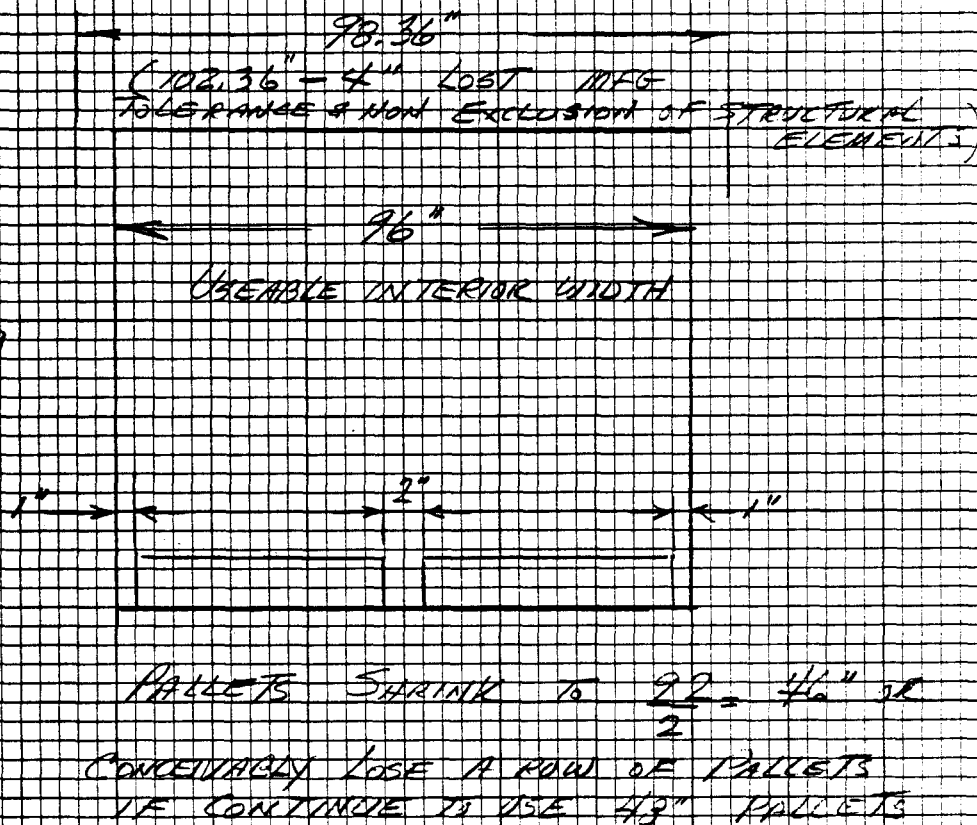 98.36"
(102.36" - 4" LOST MFG
TOLERANCE & NON EXCLUSION OF STRUCTURAL
ELEMENTS)
96"
USEABLE INTERIOR WIDTH
1" 2" 1"
PALLETS SHRINK TO 92/2 = 46" OR
CONCEIVABLY LOSE A ROW OF PALLETS
IF CONTINUE TO USE 48" PALLETS